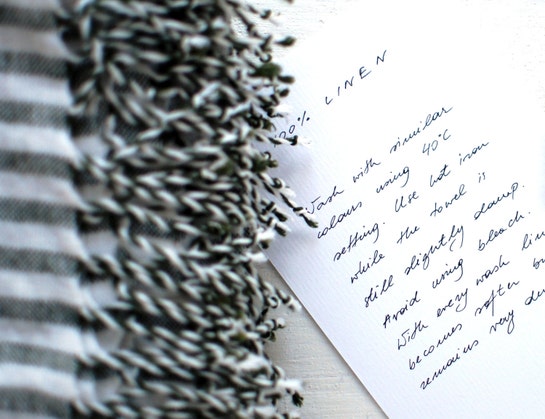 % LINEN
Wash with similar
colours using 40°C
setting. Use hot iron
while the towel is
still slightly damp.
Avoid using bleach.
With every wash
becomes softer
remains very